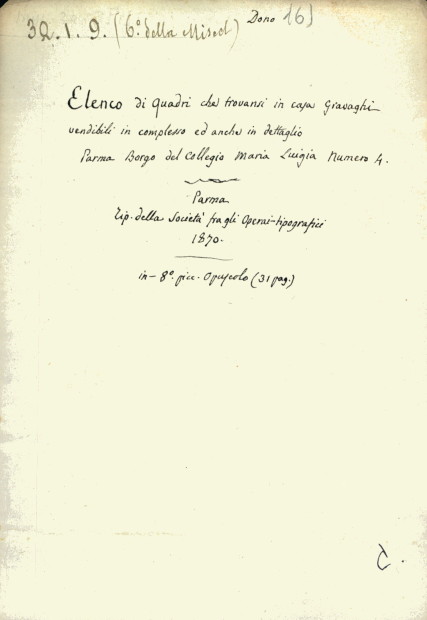 32.1.9. (6º. della Misc.) Dono 16)
Elenco di Quadri che trovansi in casa Gravaghi
vendibili in complesso ed anche in dettaglio
Parma Borgo del Collegio Maria Luigia Numero 4.
Parma
Tip. della Società fra gli Operai-tipografici
1870.
in-8º. picc. Opuscolo (31 pag.)
C.